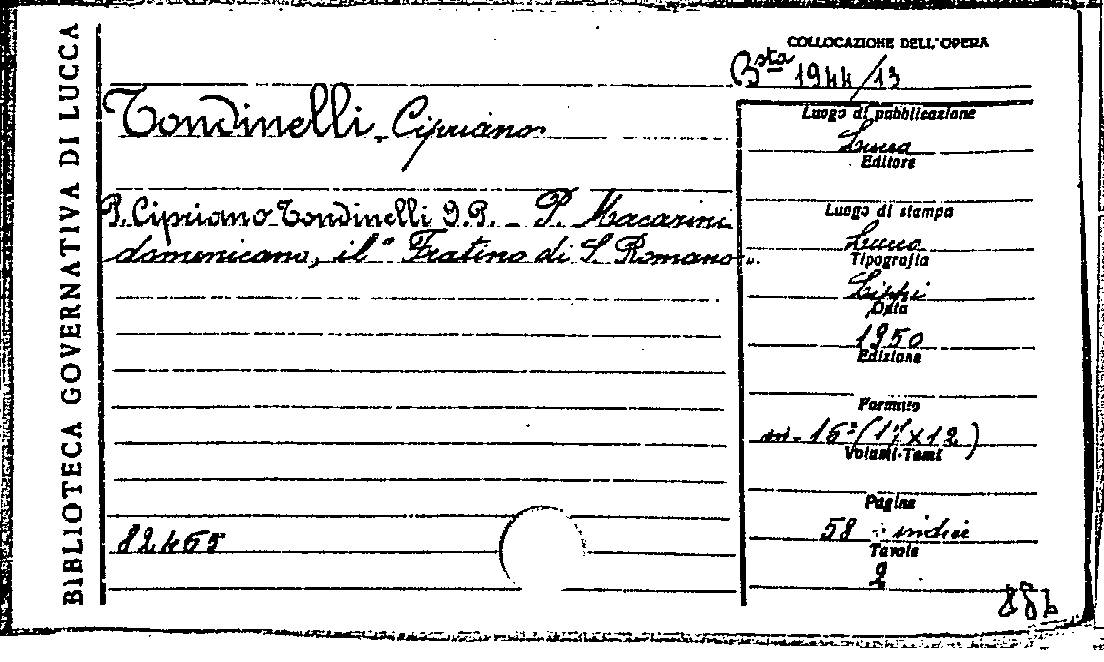 BIBLIOTECA GOVERNATIVA DI LUCCA
COLLOCAZIONE DELL'OPERA
Bsta 1944/13
Tondinelli, Cipriano
P. Cipriano Tondinelli O.P. - P. Macarini
domenicano, il "Fratino di S. Romano".
82465
Luogo di pubblicazione
Lucca
Editore
Luogo di stampa
Lucca
Tipografia
Lippi
Data
1950
Edizione
Formato
in-16°(17x12)
Volumi-Tomi
Pagine
58 indici
Tavole
2